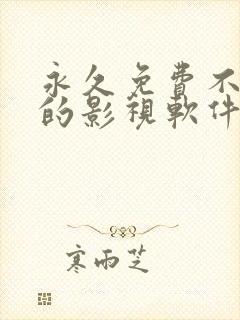 永久免費不
的影視軟件
寒雨芝